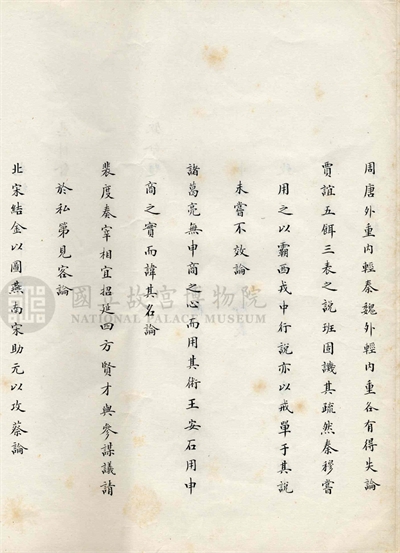 周唐外重內輕秦魏外輕內重各有得失論
賈誼五餌三表之說班固譏其疏然秦穆嘗
用之以霸西戎中行說亦以戒單于其說
未嘗不效論
諸葛亮無申商之心而用其術王安石用申
商之實而諱其名論
裴度奏宰相宜招延四方賢才與參謀議請
於私第見客論
北宋結金以圖燕南宋助元以攻蔡論
國立故宮博物院
NATIONAL PALACE MUSEUM